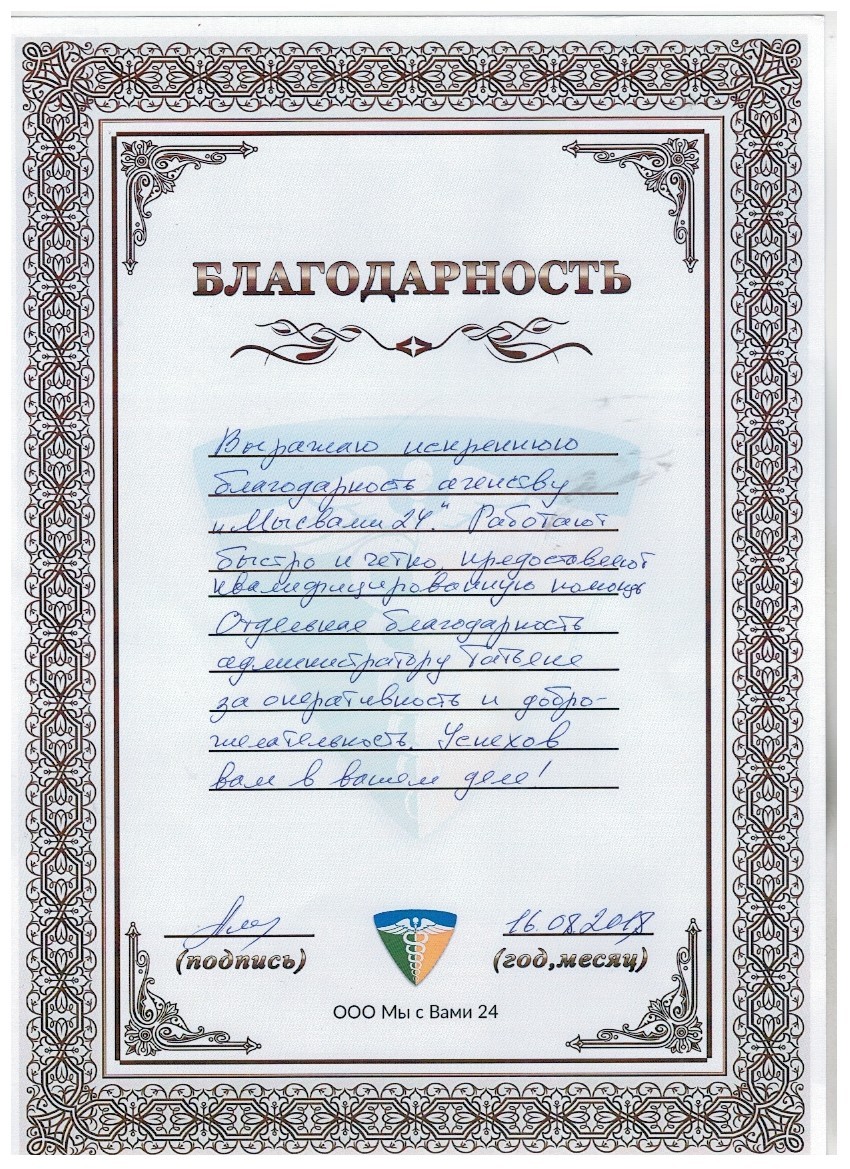 БЛАГОДАРНОСТЬ
Выражаю искреннюю
благодарность агенству
„Мысвами 24". Работают
быстро и четко, предоставляют
квалифицированную помощь
Отдельная благодарность
администратору Татьяне
за оперативность и добро-
желательность. Успехов
вам в вашем деле!
16.08.2018
(подпись)
(год,месяц)
ООО Мы с Вами 24